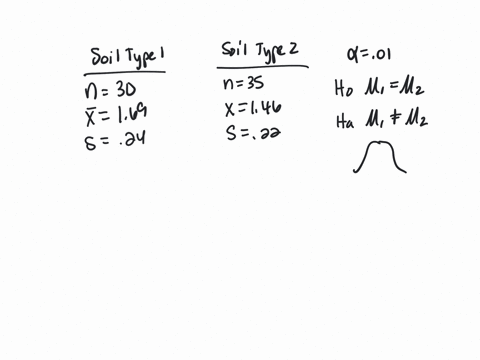 Soil Type 1
n = 30
x̄ = 1.69
s = .24
Soil Type 2
n = 35
x = 1.46
s = .22
α = .01
Ho μ₁ = μ₂
Ha μ₁ ≠ μ₂